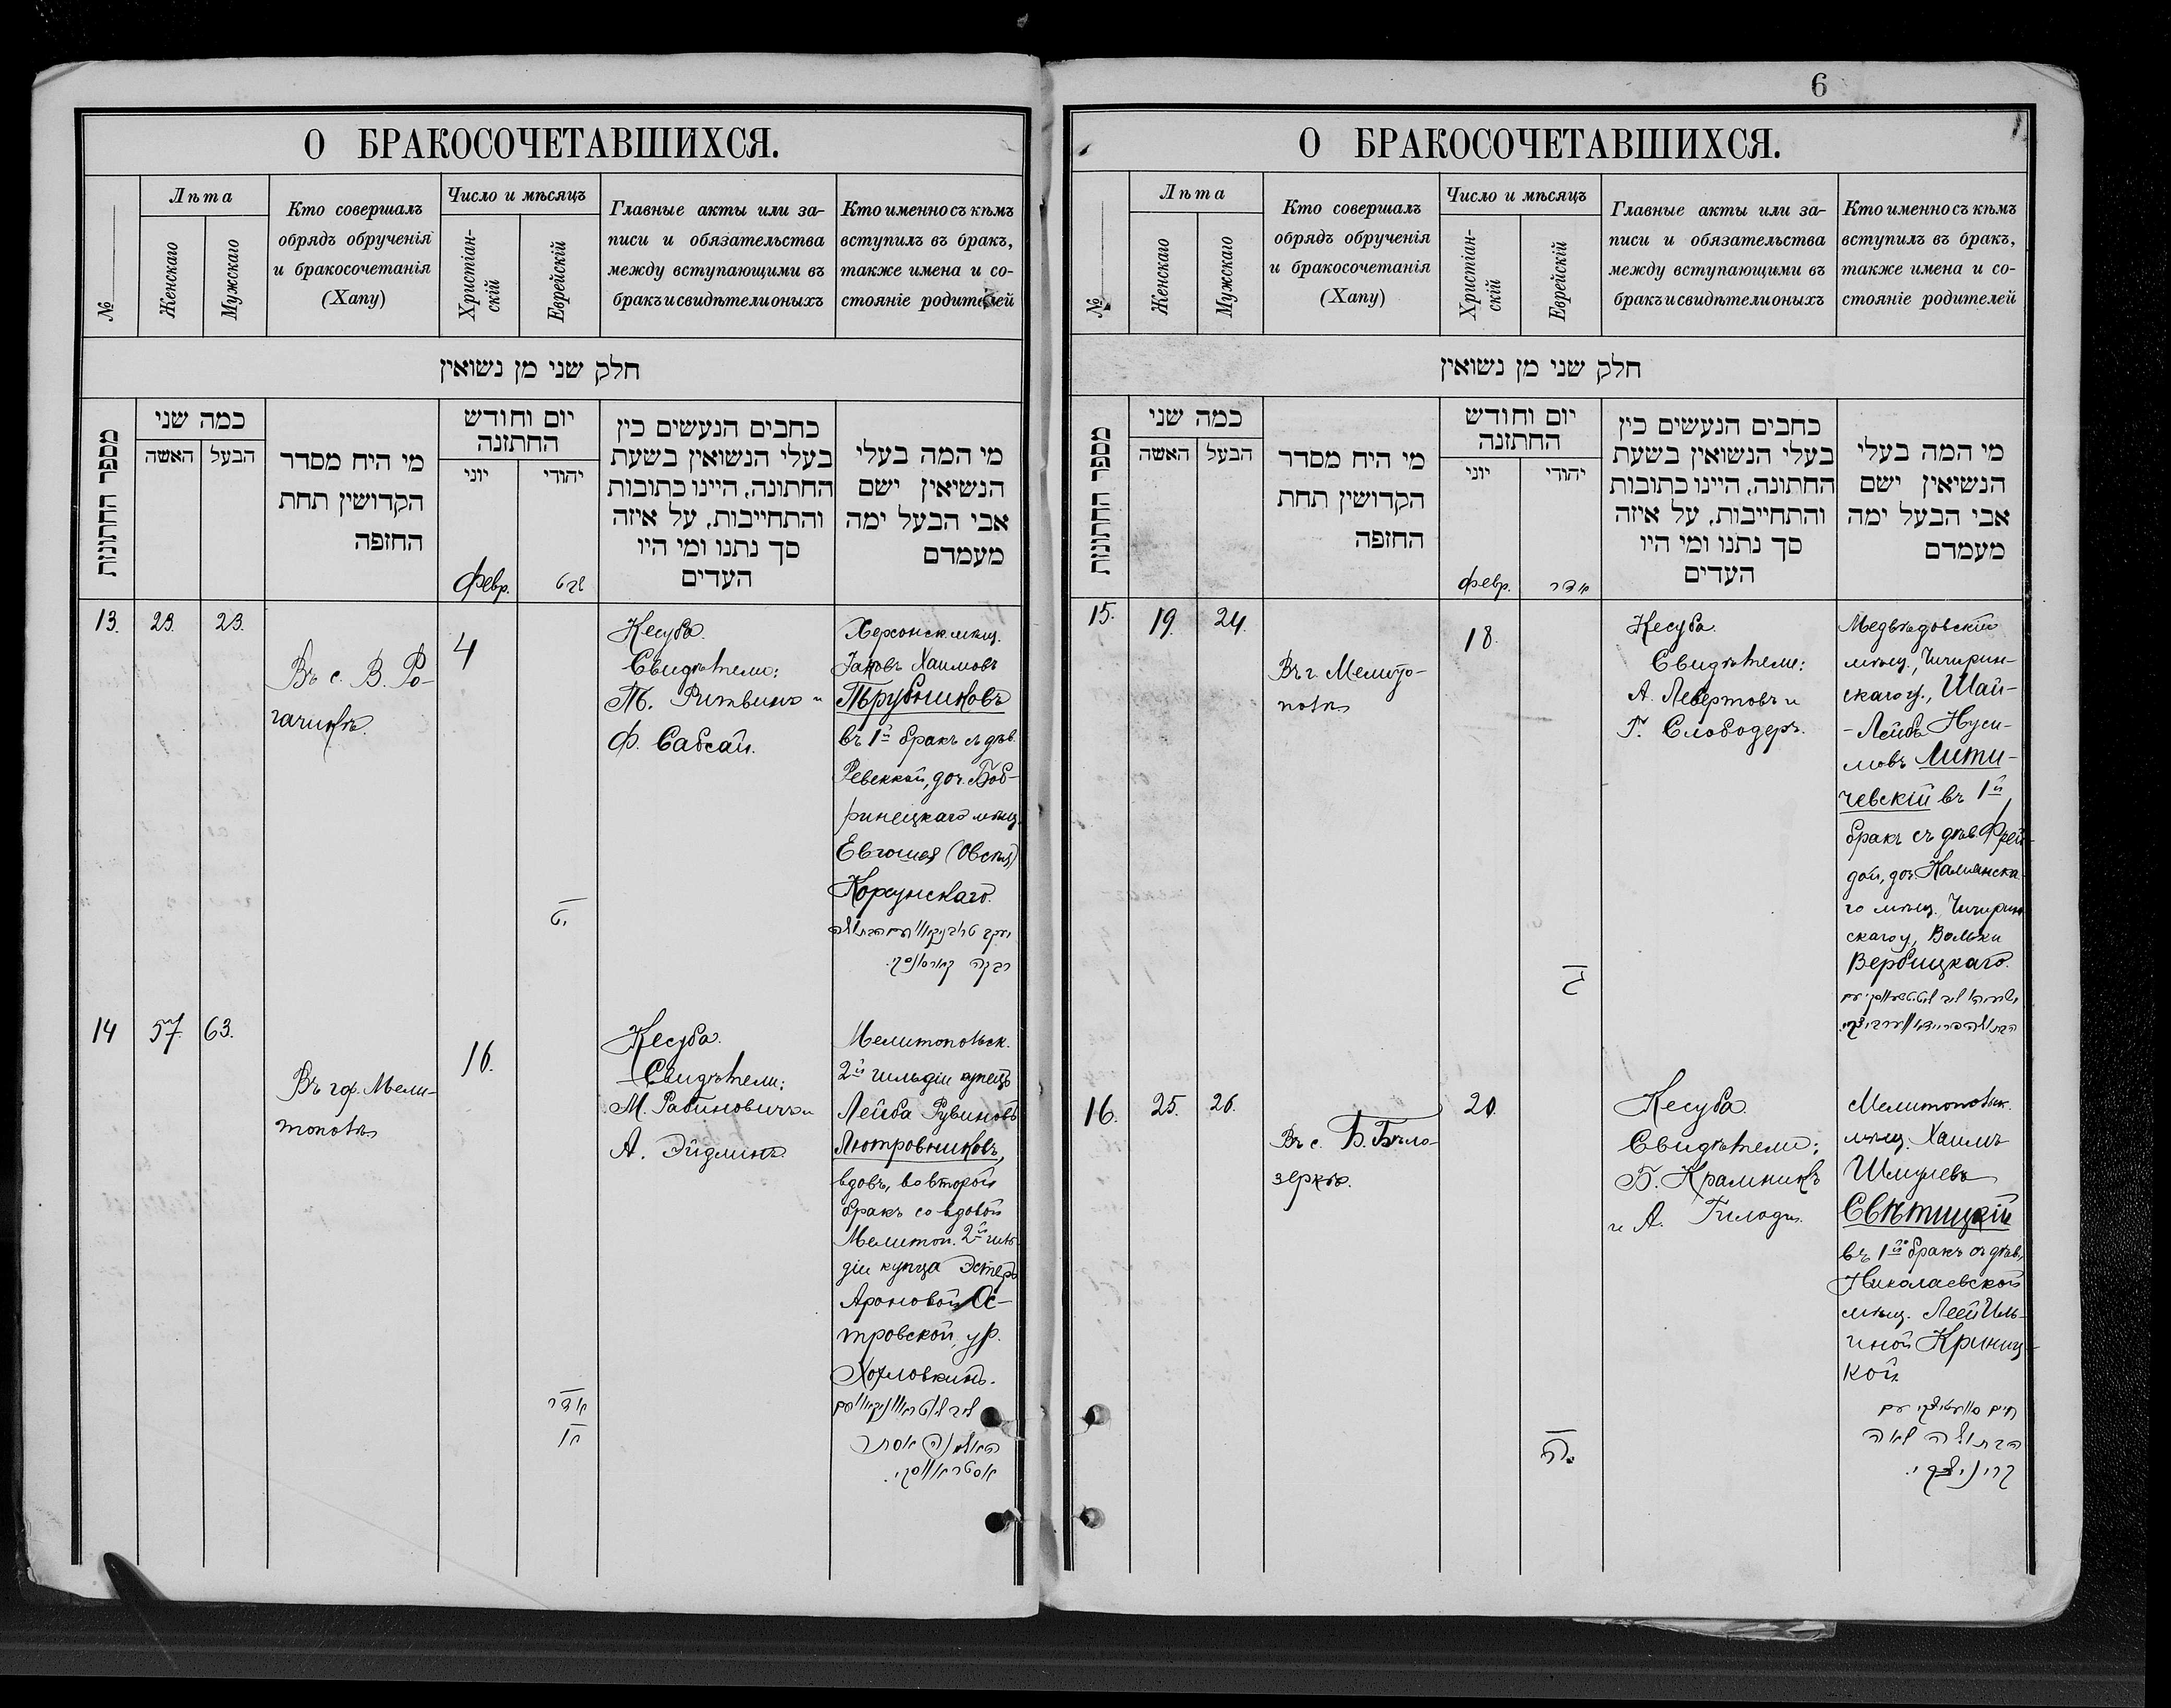 О БРАКОСОЧЕТАВШИХСЯ.
№
Лѣта
Женскаго
Мужскаго
Кто совершалъ
обрядъ обрученія
и бракосочетанія
(Хапу)
Число и мѣсяцъ
Христіан-
скій
Еврейскій
Главные акты или за-
писи и обязательства
между вступающими въ
бракъ и свидѣтели оныхъ
Кто именно съ кѣмъ
вступилъ въ бракъ,
также имена и со-
стояніе родителей
חלק שני מן נשואין
מספר החתונות
כמה שני
האשה
הבעל
מי היח מסדר
הקדושין תחת
החופה
יום וחודש
החתונה
יוני
יהודי
כחבים הנעשים כין
בעלי הנשואין בשעת
החתונה, היינו כתובות
והתחייבות, על איזה
סך נתנו ומי היו
העדים
מי המה בעלי
הנשיאין ישם
אבי הבעל ימה
מעמדם
Февр.
שבט
13.
23.
23.
Въ с. В. Ро-
гачикѣ.
4
יט
Кесуба.
Свидѣтели:
Т. Литвинъ и
Ф. Сабсай.
Херсонск. мѣщ.
Іаковъ Хаимовъ
Трубниковъ
въ 1й бракъ съ дѣв.
Ревеккой, доч. Боб-
ринецкаго мѣщ.
Евгошея (Овсѣя)
Корсунскаго.
יעקב טרובניקוו עם הבתולה
רבקה קורסונסקי.
14
57.
63.
Въ гор. Мели-
тополѣ.
16.
אדר
Кесуба.
Свидѣтели:
М. Рабиновичъ и
А. Эйдлинъ.
Мелитопольск.
2й гильдіи купецъ
Лейба Рувиновъ
Лютровниковъ,
вдовъ, во второй
бракъ со вдовой
Мелитоп. 2й гиль-
діи купца Эстеръ
Ароновой Ос-
тровской, ур.
Хотловкинъ.
האלמנה אסתר
אסטראווסקי.
6
О БРАКОСОЧЕТАВШИХСЯ.
№
Лѣта
Женскаго
Мужскаго
Кто совершалъ
обрядъ обрученія
и бракосочетанія
(Хапу)
Число и мѣсяцъ
Христіан-
скій
Еврейскій
Главные акты или за-
писи и обязательства
между вступающими въ
бракъ и свидѣтели оныхъ
Кто именно съ кѣмъ
вступилъ въ бракъ,
также имена и со-
стояніе родителей
חלק שני מן נשואין
מספר החתונות
כמה שני
האשה
הבעל
מי היח מסדר
הקדושין תחת
החופה
יום וחודש
החתונה
יוני
יהודי
כחבים הנעשים כין
בעלי הנשואין בשעת
החתונה, היינו כתובות
והתחייבות, על איזה
סך נתנו ומי היו
העדים
מי המה בעלי
הנשיאין ישם
אבי הבעל ימה
מעמדם
Февр.
אדר
15.
19.
24.
Въ г. Мелито-
полѣ
18.
ג
Кесуба.
Свидѣтели:
А. Левертовъ и
Г. Слободеръ.
Медвѣдовскій
мѣщ., Чигирин-
скаго у., Шай-
-Лейба Нуси-
мовъ Лити-
чевскій въ 1й
бракъ съ дѣв. Фрей-
дой, доч. Каменска-
го мѣщ., Чигирин-
скаго у., Вольки
Вербицкаго.
הבתולה פריידא ווערביצקי.
16.
25.
26.
Въ с. Б. Бѣло-
зеркѣ.
20.
ה
Кесуба.
Свидѣтели:
Б. Крамникъ
и А. Гилодъ.
Мелитопольск.
мѣщ. Хаимъ
Шмулевъ
Свѣтицкій
въ 1й бракъ съ дѣв.
Николаевской
мѣщ. Леей Иль-
иной Криниц-
кой.
חיים סוועטיצקי עם
הבתולה לאה
קריניצקי.